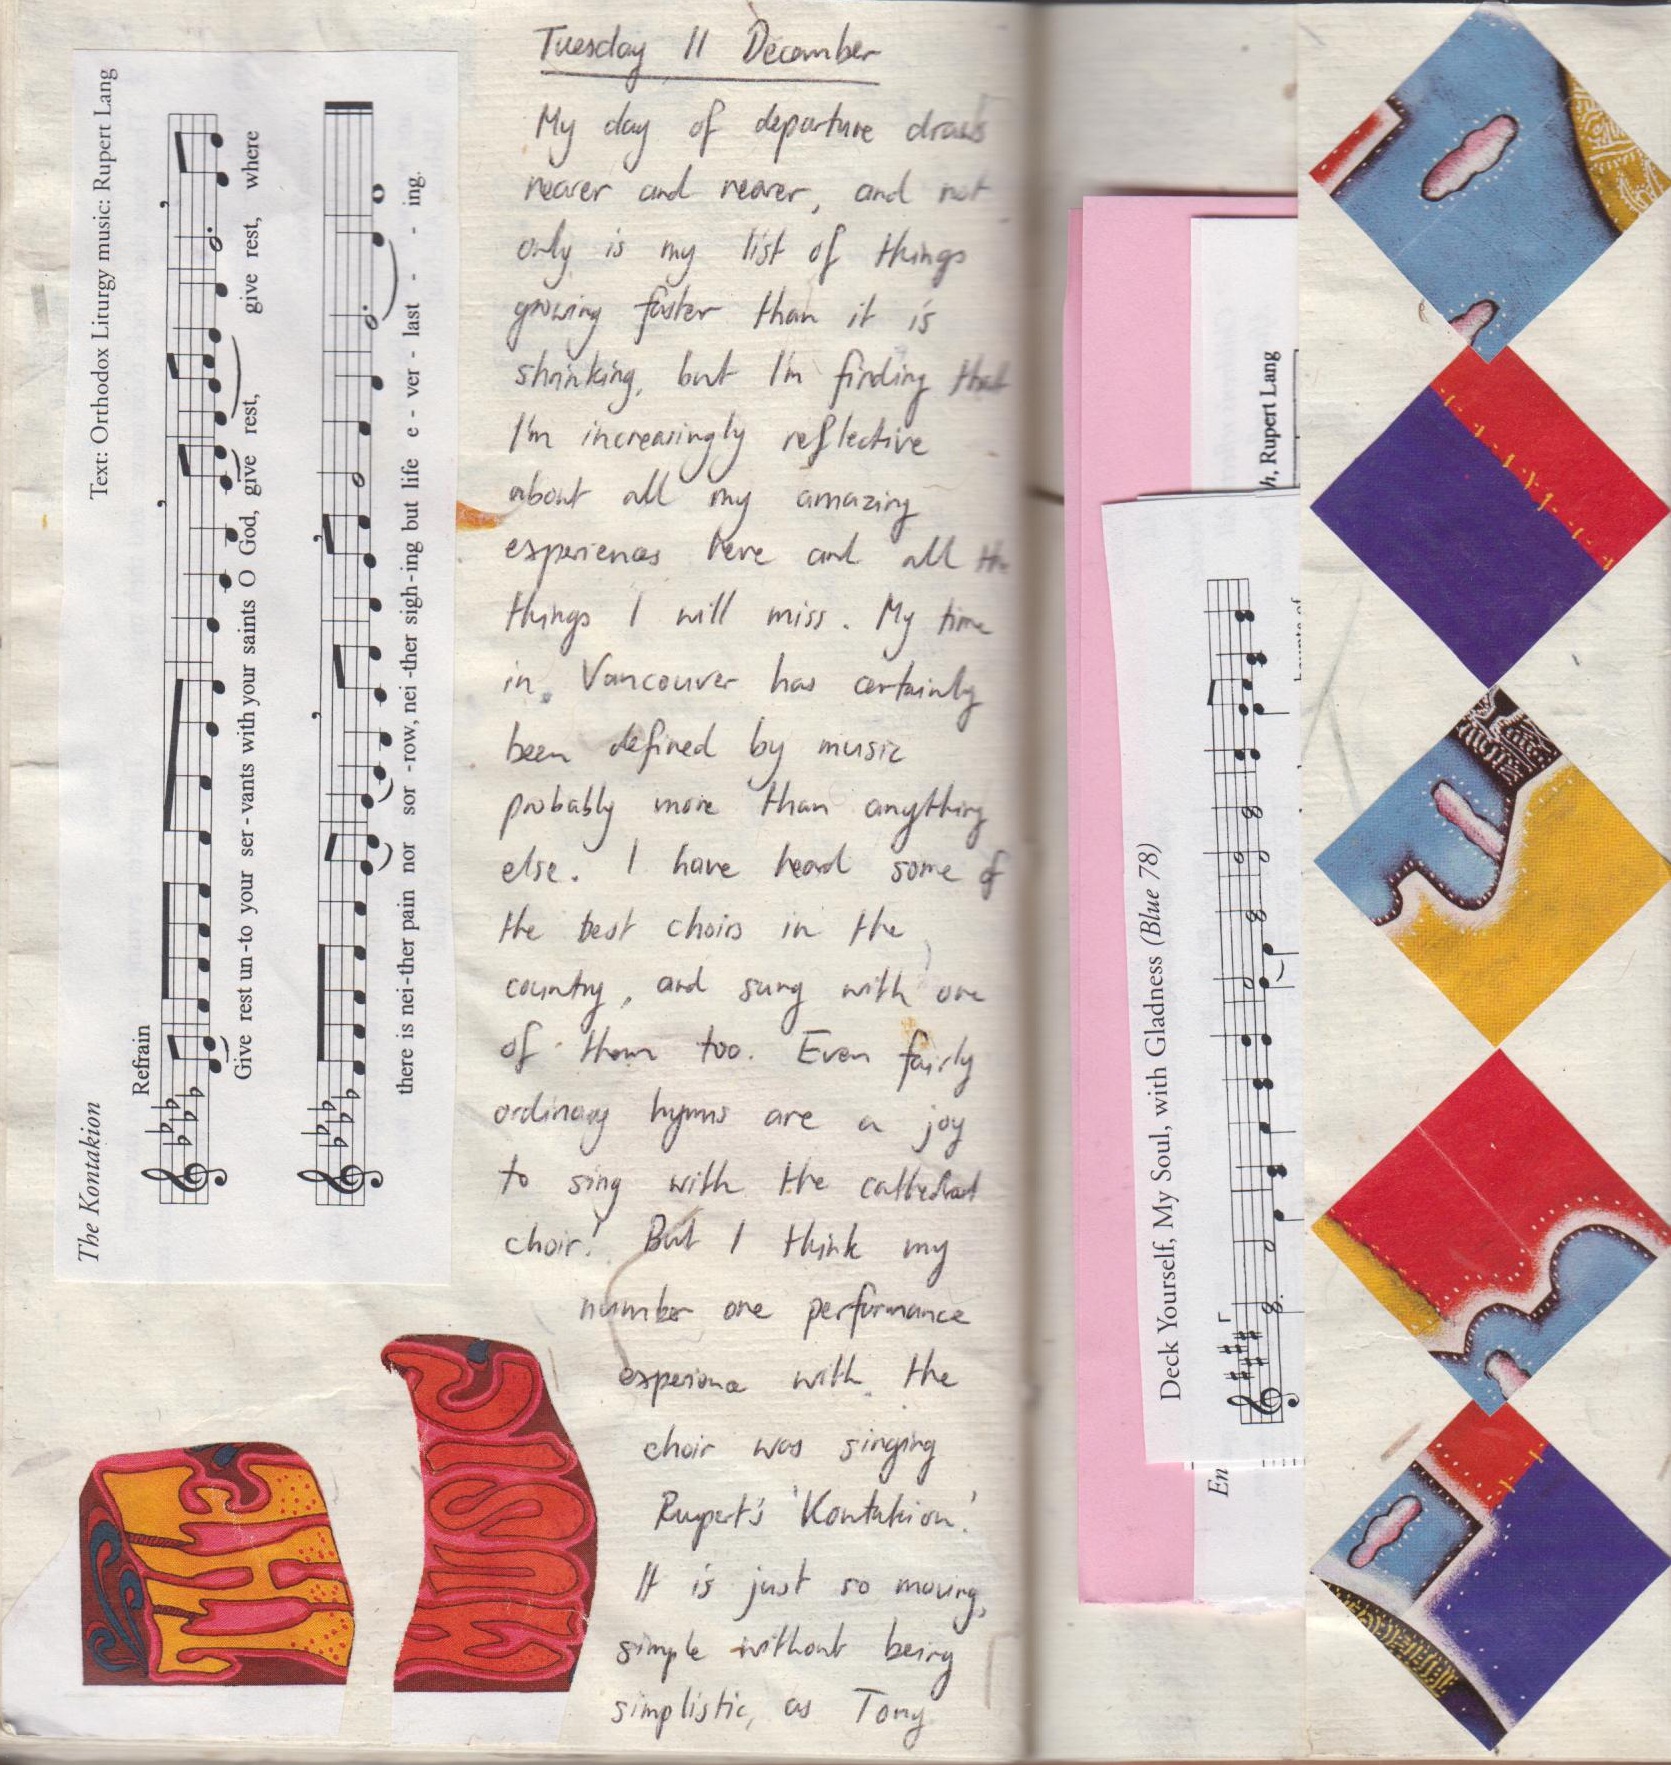 The Kontakion
Text: Orthodox Liturgy music: Rupert Lang
Refrain
Give rest un-to your ser-vants with your saints O God, give rest, give rest, where
there is nei-ther pain nor sor-row, nei-ther sigh-ing but life e-ver-last--ing.
THE
MUSIC
Tuesday 11 December
My day of departure draws
nearer and nearer, and not
only is my list of things
growing faster than it is
shrinking, but I'm finding that
I'm increasingly reflective
about all my amazing
experiences here and all the
things I will miss. My time
in Vancouver has certainly
been defined by music
probably more than anything
else. I have heard some of
the best choirs in the
country, and sung with one
of them too. Even fairly
ordinary hymns are a joy
to sing with the cathedral
choir! But I think my
number one performance
experience with the
choir was singing
Rupert's 'Kontakion'.
It is just so moving,
simple without being
simplistic, as Tony
h, Rupert Lang
Deck Yourself, My Soul, with Gladness (Blue 78)
En